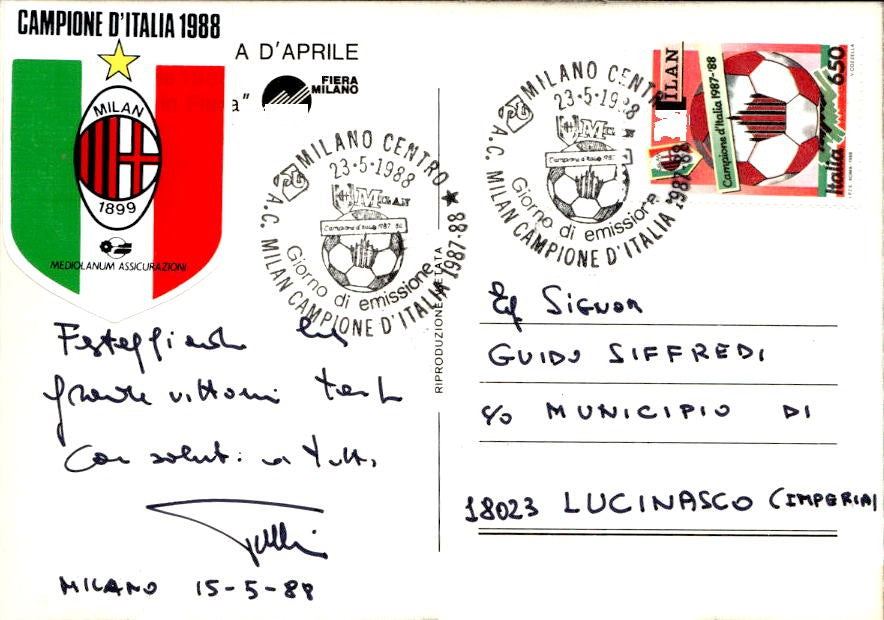 CAMPIONE D'ITALIA 1988
A D'APRILE
FIERA
MILANO
MILAN
1899
MEDIOLANUM ASSICURAZIONI
MILANO CENTRO
23-5-1988
MILAN
Campione d'Italia 1987-88
Giorno di emissione
A.C. MILAN CAMPIONE D'ITALIA 1987-88
MILANO CENTRO
23-5-1988
MILAN
Campione d'Italia 1987
Giorno di emissione
A.C. MILAN CAMPIONE D'ITALIA 1987-88
MILAN
Campione d'Italia 1987-'88
Italia 650
V. COZZELLA
I.P.Z.S. ROMA 1988
RIPRODUZIONE VIETATA
Festeggiando
grande vittoria
Con saluti a tutti
MILANO 15-5-88
Eg. SIGNOR
GUIDO SIFFREDI
c/o MUNICIPIO DI
18023 LUCINASCO (IMPERIA)